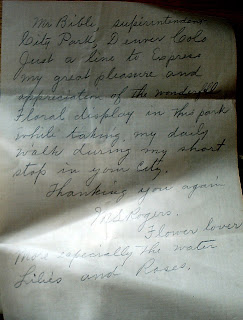 Mr Bible, superintendent
City Park, Denver Colo
Just a line to Express
my great pleasure and
appreciation of the wonderful
Floral display in this park
while taking my daily
walk during my short
stop in your City.
Thanking you again
Mrs Rogers.
Flower lover
More especially the water
Lilies and Roses.